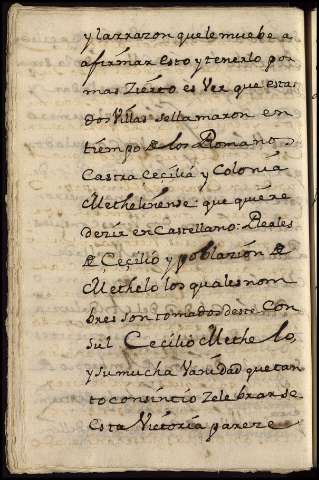 y la rrazon que le muebe a
afirmar esto y tenerlo por
mas Zierto es Ver que estas
dos Villas se llamaron en
tiempo de los Romanos
Castra Cecilia y Colonia
Methelinense: que quiere
dezir en Castellano: Reales
de Ceçilio y poblazion de
Methelo los quales nom
bres son tomados deste Con
sul Cecilio Methelo,
y su mucha Vanidad que tan
to consintio Zelebrar se
esta Victoria pareze